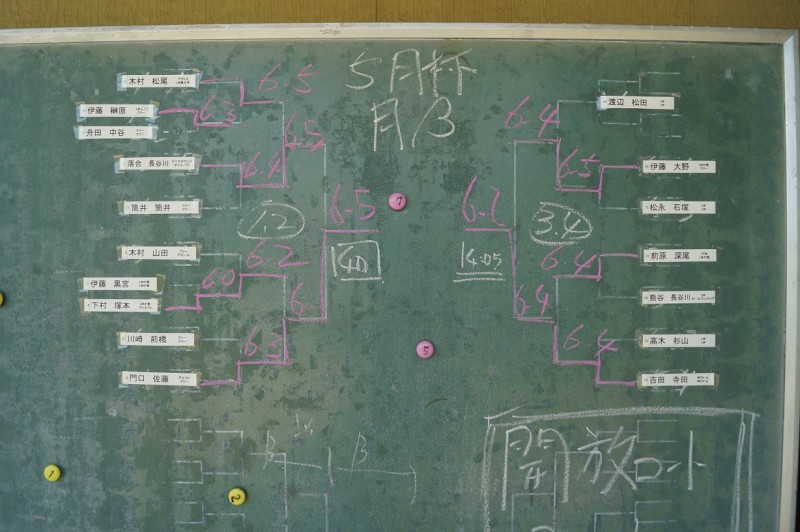 5月杯
月B
木村 松尾
伊藤 榊原
舟田 中谷
落合 長谷川
筒井 筒井
木村 山田
伊藤 黒宮
下村 塚本
川崎 前橋
門口 佐藤
6-5
6-3
6-5
6-4
1.2
6-2
6-0
6-3
6-5
渡辺 松田
伊藤 大野
松永 石塚
前原 深尾
熊谷 長谷川
高木 杉山
吉田 寺田
6-4
6-5
6-2
3.4
6-4
6-4
6-4
4:05
7
5
1
2
B
B
開放コート